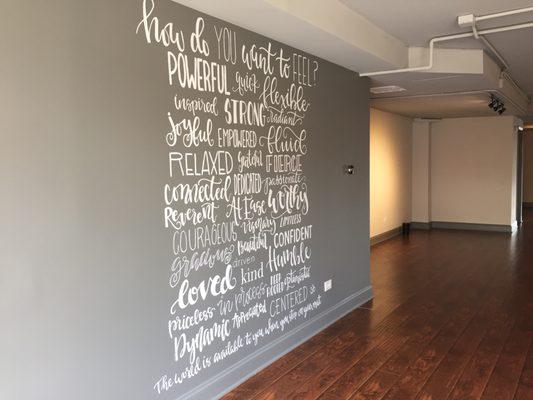 how do YOU want to FEEL?
POWERFUL quick flexible
inspired STRONG radiant
joyful EMPOWERED fluid
RELAXED grateful
connected DEDICATED passionate
Reverent At EASE worthy
COURAGEOUS visionary LIMITLESS
gracious beautiful CONFIDENT
loved driven kind Humble
priceless in process DEEP ROOTED optimistic
Dynamic Appreciated CENTERED
The world is available to you when you step on your mat